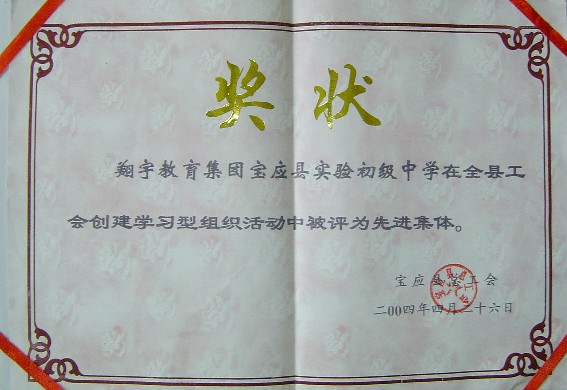 奖状
翔宇教育集团宝应县实验初级中学在全县工
会创建学习型组织活动中被评为先进集体。
宝应县总工会
二00四年四月二十六日